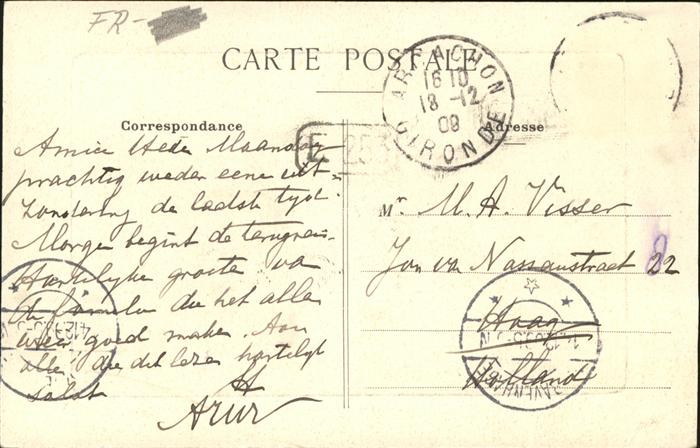 FR-
CARTE POSTALE
ARCACHON
16 10
18 -12
09
GIRONDE
Correspondance
Adresse
Heden Maandag
prachtig weder eene uit-
zondering de laatste tijd.
Morgen begint de terugreis.
Hartelijke groete van
de familie die het alle
goed maken. Aan
alle die dit lezen hartelijk
saluut
Mr. M. A. Visser
Jan van Nassaustraat 22
Haag
Holland